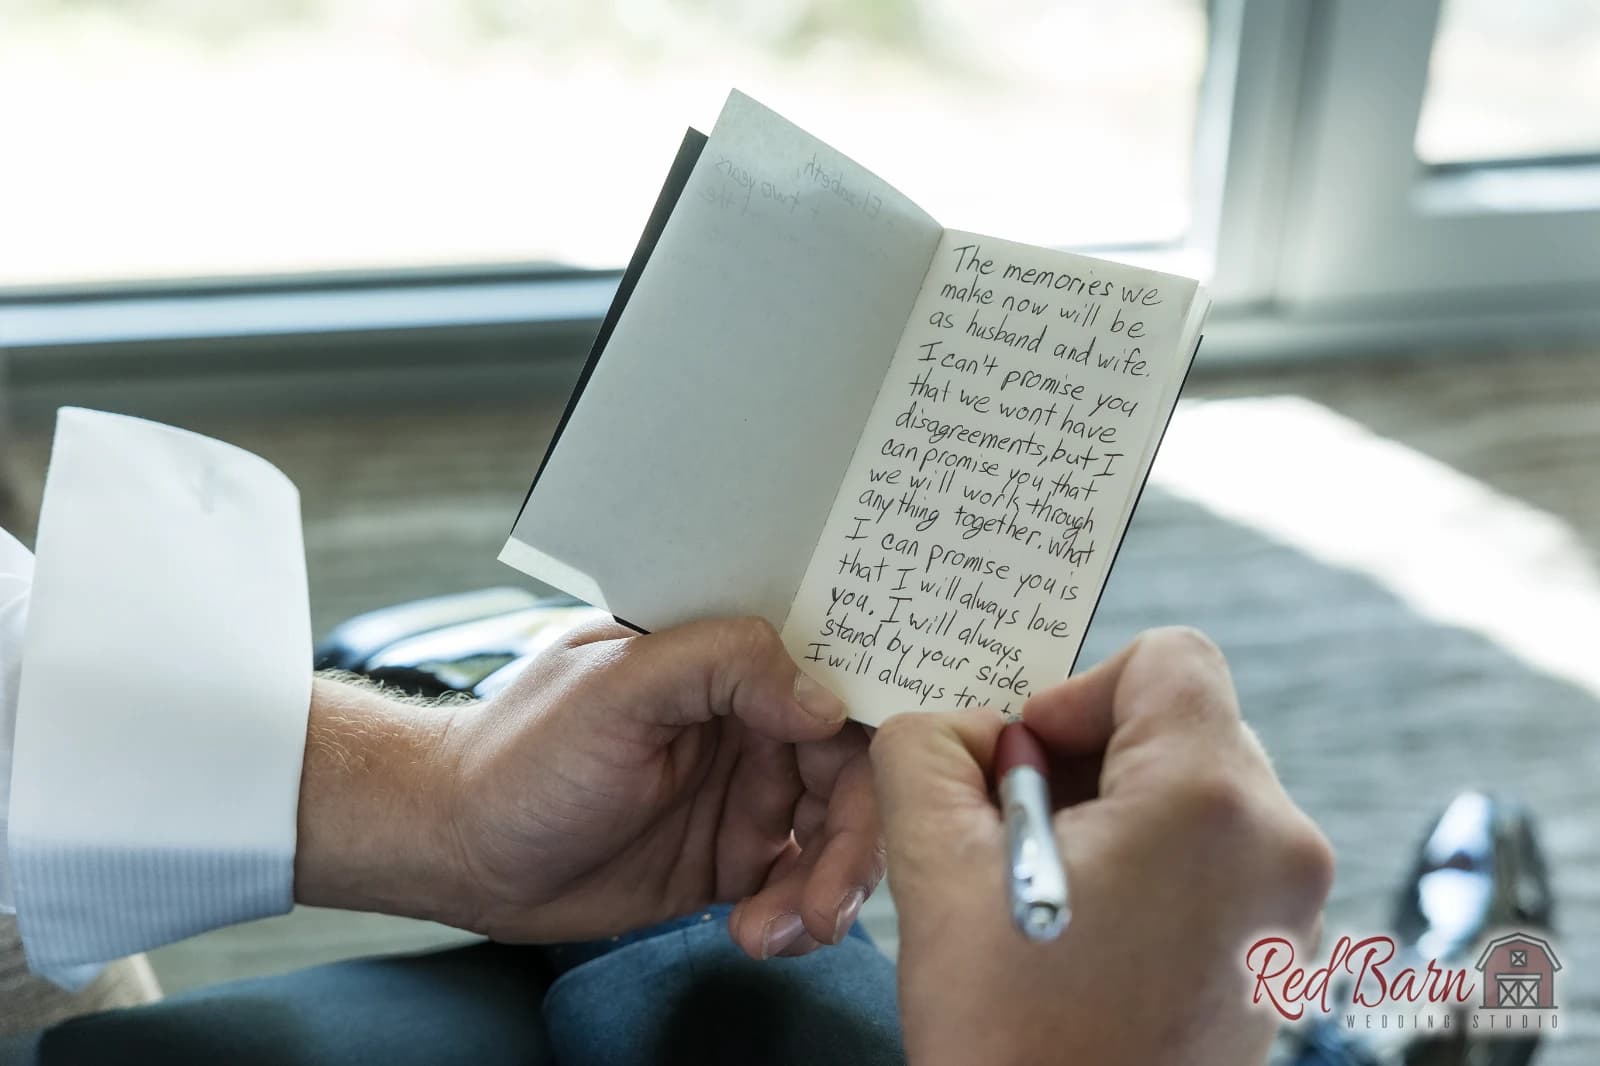 Elizabeth,
two years
of the
The memories we
make now will be
as husband and wife.
I can't promise you
that we wont have
disagreements, but I
can promise you that
we will work through
anything together. What
I can promise you is
that I will always love
you. I will always
stand by your side.
I will always try to
Red Barn
WEDDING STUDIO